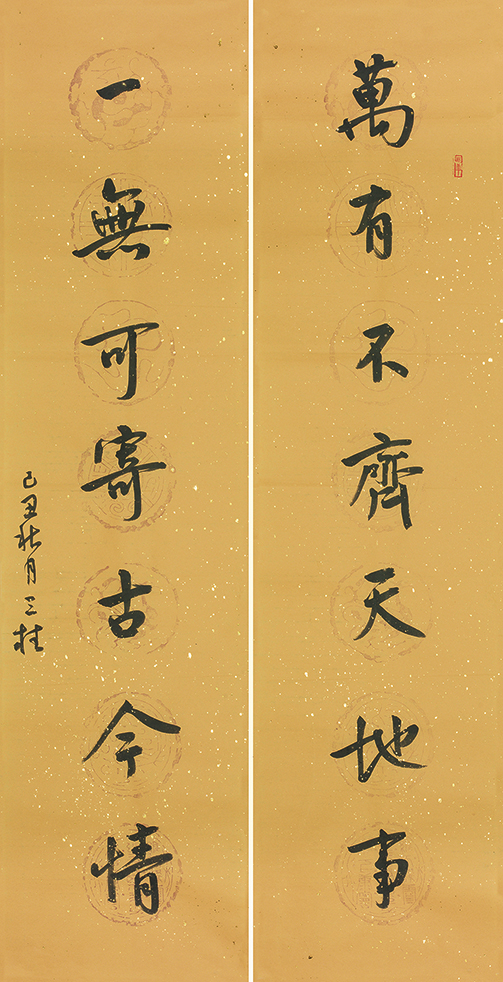 萬有不齊天地事
一無可寄古今情
己丑秋月三柱